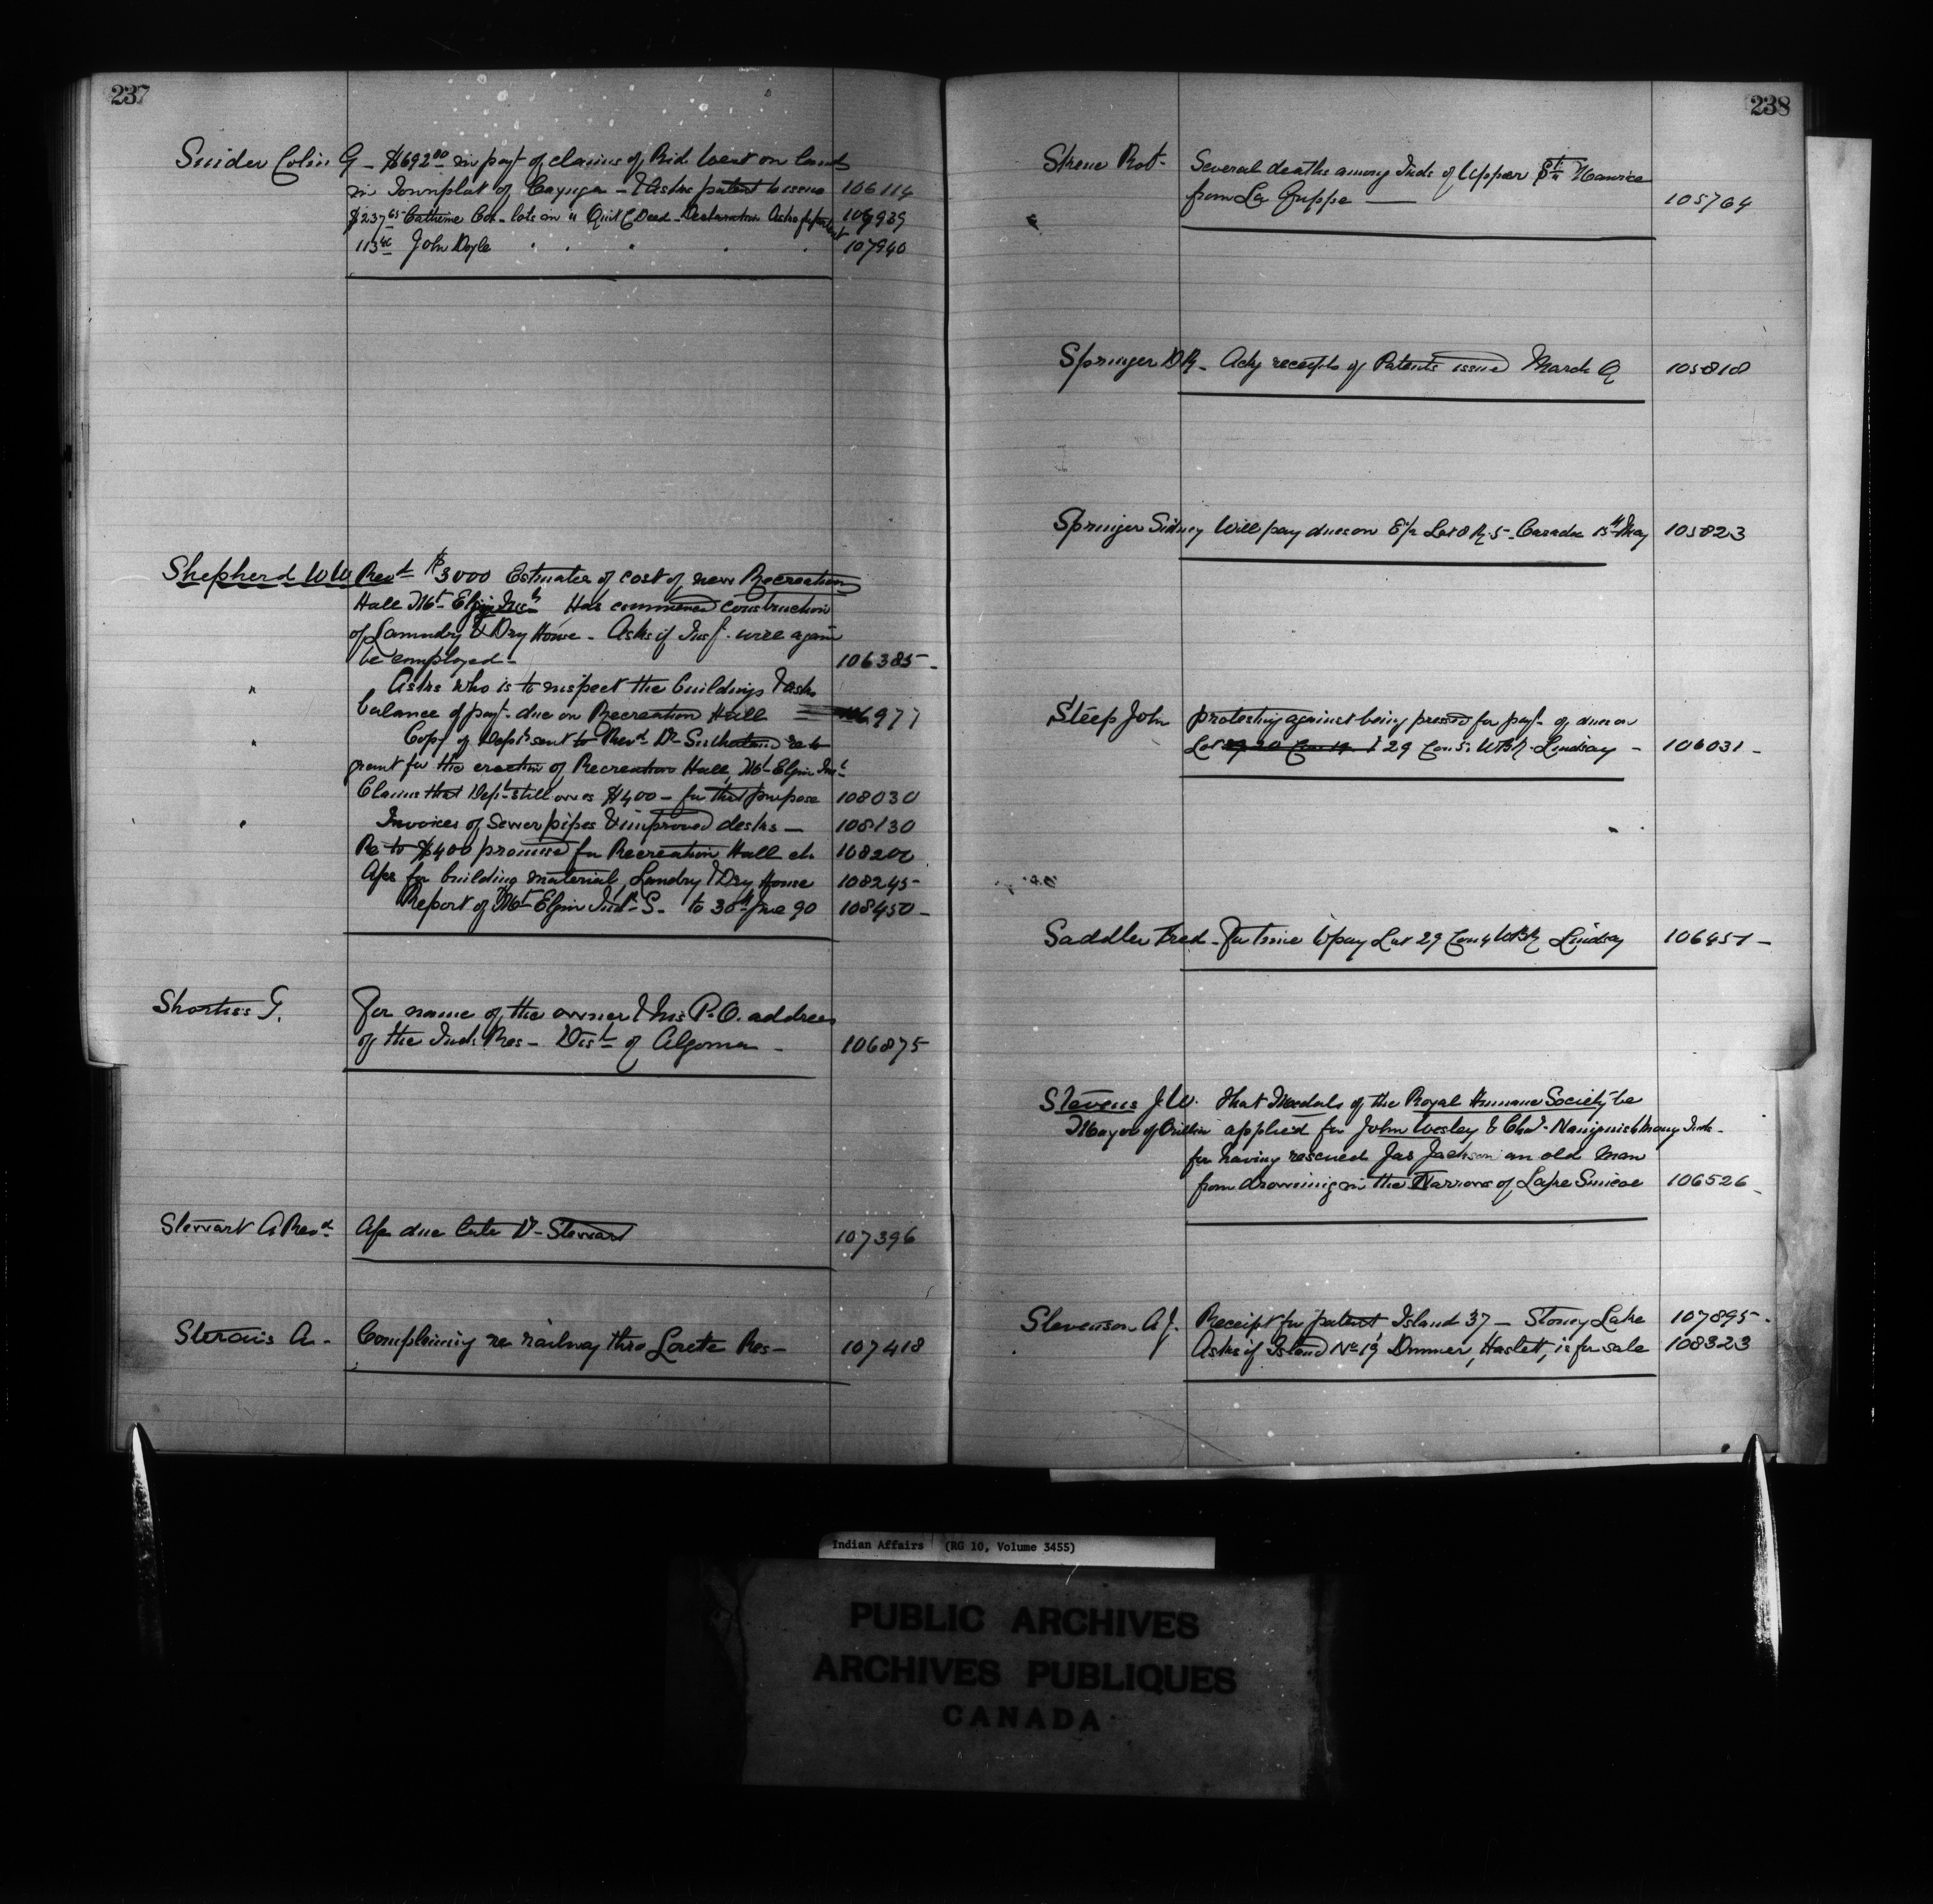 237
Snider Colin G - $692.00 in payt of claims of Rid. Went on lands
in Townplot of Cayuga - & Asks patent to issue 106114
$237.65 Catherine Cox - lots in " Quit C Deed - Declaration Asks for patent 107939
113.40 John Doyle " " " " " 107940
Shepherd WW Revd $3000 Estimates of cost of new Recreation
Hall Mt Elgin Insth Has commenced construction
of Laundry & Dry House - Asks if Insp. will again
be employed - 106385 -
" Asks who is to inspect the buildings & asks
balance of payt. due on Recreation Hall 106977
" Copy of Dept's sent to Revd Dr Sutherland re to
grant for the erection of Recreation Hall, Mt Elgin Inst
Claims that Dept still owes $400 - for that purpose 108030
" Invoices of Sewer pipes & improved desks - 108130
Re to $400 promised for Recreation Hall etc 108200
A/cs for building material, Laundry & Dry House 108245 -
Report of Mt Elgin Indl S. to 30th June 90 108450 -
Shortiss T. For name of the owner & his P.O. address
of the Inds Res - Dist of Algoma - 106875
Stewart A Revd A/c due late D. Stewart 107396
A - Complaining re railway thro Lorette Res - 107418
238
Skene Robt - Several deaths among Inds of Upper St Maurice
from La Grippe - 105764
Springer DR - Ackg receipts of Patents issued March Q 105818
Springer Sidney Will pay dues on E½ Lot 8 R. 5 - Caradoc 15th May 105823
Steep John protesting against being pressed for payt. of dues on
Lot 29 Con 5 WBR. Lindsay - 106031 -
Saddler Fred - For time to pay Lot 29 Con 4 WBR Lindsay 106451 -
Stevens J.W. That Medals of the Royal Humane Society be
Mayor of Orillia applied for John Wesley & Chas. Inds -
for having rescued Jas Jackson an old man
from drowning in the Narrows of Lake Simcoe 106526 -
Stevenson A J. Receipt for patent Island 37 - Stoney Lake 107895 -
" Asks if Island No 19 Dummer, Haslett, is for sale 108323
Indian Affairs (RG 10, Volume 3455)
PUBLIC ARCHIVES
ARCHIVES PUBLIQUES
CANADA